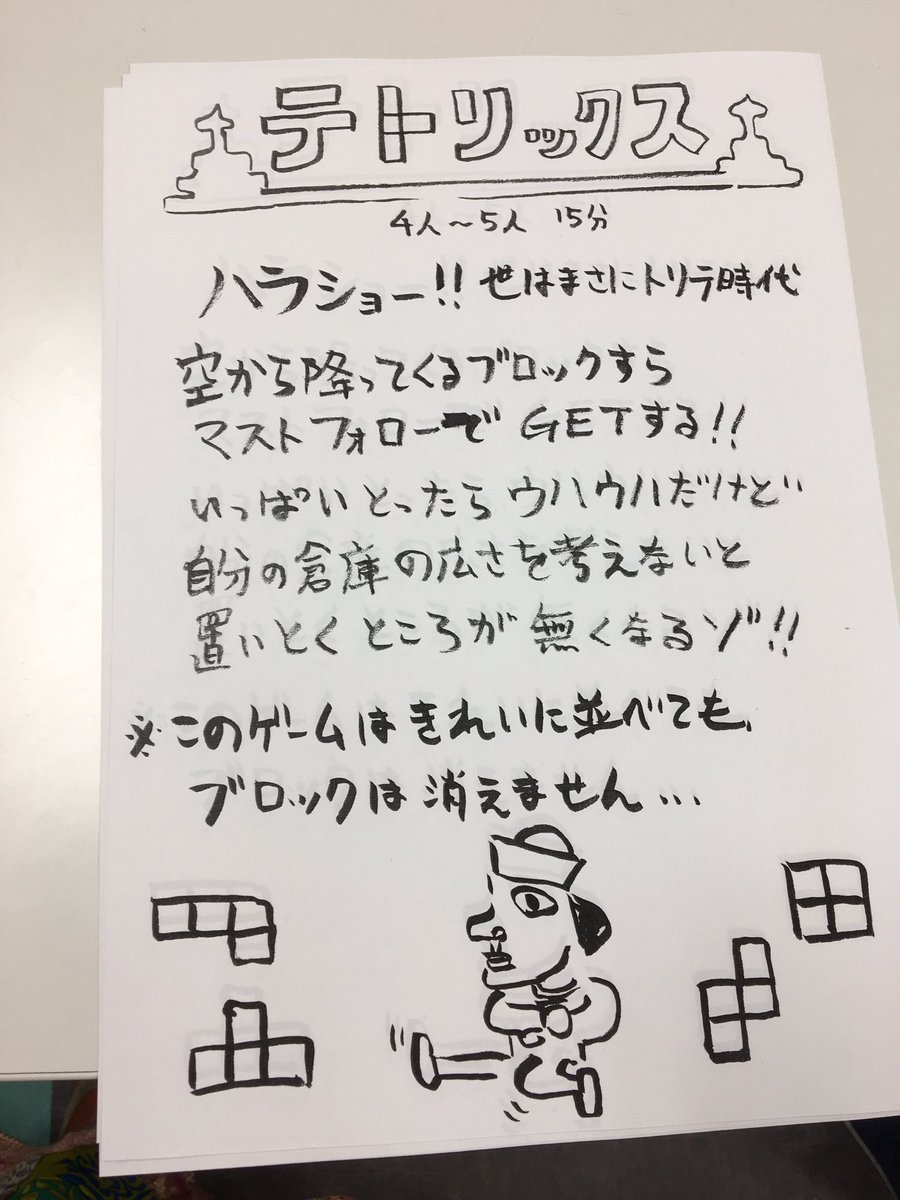 テトリックス
4人～5人 15分
ハラショー!! 世はまさにトリテ時代
空から降ってくるブロックすら
マストフォローで GETする!!
いっぱいとったら ウハウハだけど
自分の倉庫の広さを考えないと
置いとくところが 無くなるゾ!!
※このゲームはきれいに並べても、
ブロックは消えません...